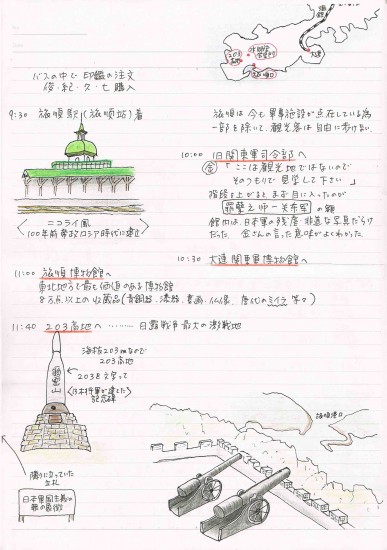 旅順
203高地
大連
バスの中で 印鑑の注文
俊・紀・久・七 購入
9:30 旅順駅(旅順站)着
ニコライ風
100年前帝政ロシア時代に建立
旅順は今も軍事施設が点在している為
一部を除いて、観光客は自由に歩けない。
10:00 旧関東軍司令部へ
金「ここは観光地ではないので
そのつもりで見学して下さい」
階段を上がると、まず目に入ったのが
罪孽之师－关东军 の額
館内は、日本軍の残虐・非道な写真だらけ
だった 金さんの言った意味がよくわかった。
10:30 大連 関東軍博物館へ
11:00 旅順博物館へ
東北地方で最も価値のある博物館
8万点以上の収蔵品(青銅器・漆器・書画・仏像、唐代のミイラ 等々)
11:40 203高地へ ……… 日露戦争最大の激戦地
海抜203mなので
203高地
203を文字って
乃木将軍が建てた
記念碑
爾霊山
隣りに立っていた
立札
日本軍国主義は
罪の象徴
旅順港口